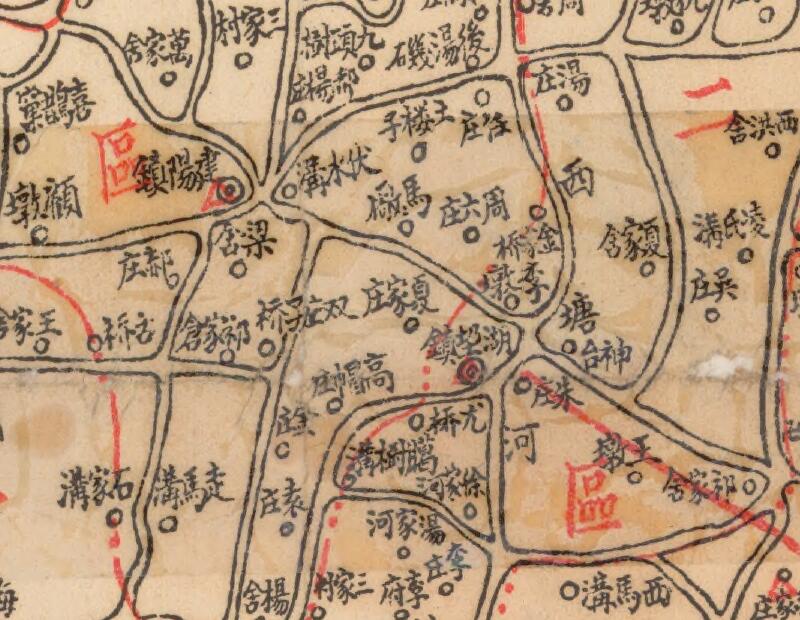 三家村
萬家舍
九頭樹
後湯磯
郝楊庄
湯庄
二
西洪舍
嘉鵲巢
區
建陽鎮
顧墩
伏水溝
王楼子
任庄
西
馬
周六庄
夏家舍
凌氏溝
梁舍
郝庄
金
橋
李墩
吴庄
塘
王家舍
祁家舍
双庄子桥
夏家庄
湖垛鎮
神台
高帽庄
朱庄
尤桥
金庄
河
王墩
祁家舍
石家溝
走馬溝
樹溝
徐家河
袁庄
區
湯家河
李庄
楊舍
三家村
李府
西馬溝
家庄